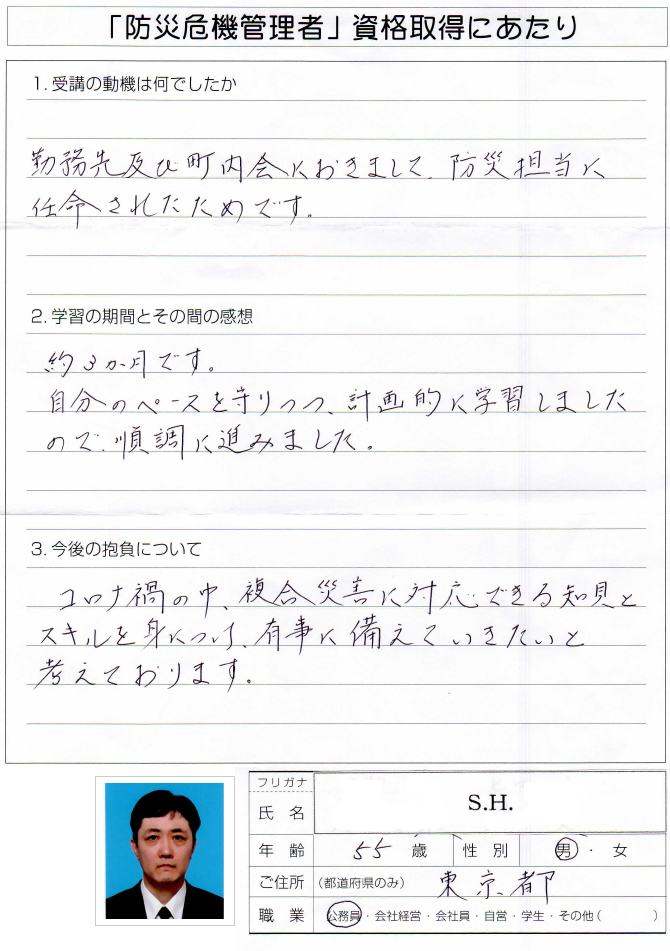 「防災危機管理者」資格取得にあたり
1. 受講の動機は何でしたか
勤務先及び町内会におきまして、防災担当に
任命されたためです。
2. 学習の期間とその間の感想
約3か月です。
自分のペースを守りつつ、計画的に学習しました
ので、順調に進みました。
3. 今後の抱負について
コロナ禍の中、複合災害に対応できる知見と
スキルを身につけ、有事に備えていきたいと
考えております。
フリガナ
氏 名 S.H.
年 齢 55 歳 性 別 男 ・ 女
ご住所 (都道府県のみ) 東京都
職 業 公務員・会社経営・会社員・自営・学生・その他( )